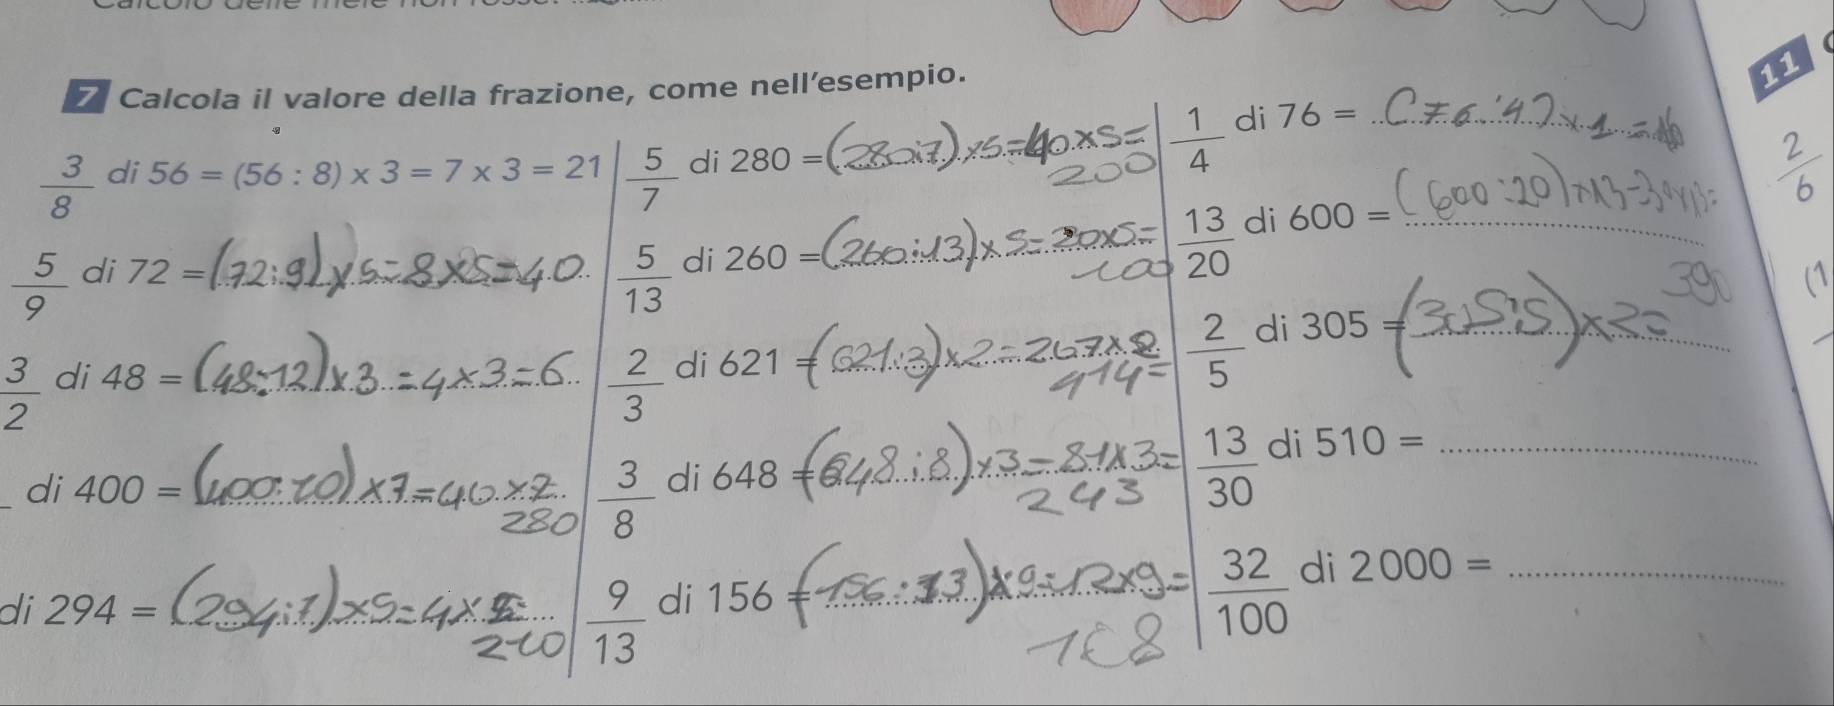 7 Calcola il valore della frazione, come nell'esempio.
11
3/8 di 56 = (56 : 8) x 3 = 7 x 3 = 21
5/9 di 72 = (72:9)x5=8x5=40
3/2 di 48 = (48:12)x3=4x3=6
di 400 = (400:10)x7=40x7
280
di 294 = (294:7)x5=4x5=
210
5/7 di 280 = (280:7)x5=40x5=
200
5/13 di 260 = (260:13)x5=20x5=
100
2/3 di 621 = (621:3)x2=267x2
414=
3/8 di 648 = (648:8)x3=81x3=
243
9/13 di 156 = (156:13)x9=12x9=
108
1/4 di 76 = (76:4)x1=
13/20 di 600 = (600:20)x13=30x13=
390
2/5 di 305 = (305:5)x2=
13/30 di 510 =
32/100 di 2000 =
2/6
(1